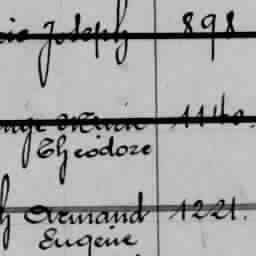 Joseph 898
1140.
Theodore
Armand 1221.
Eugène